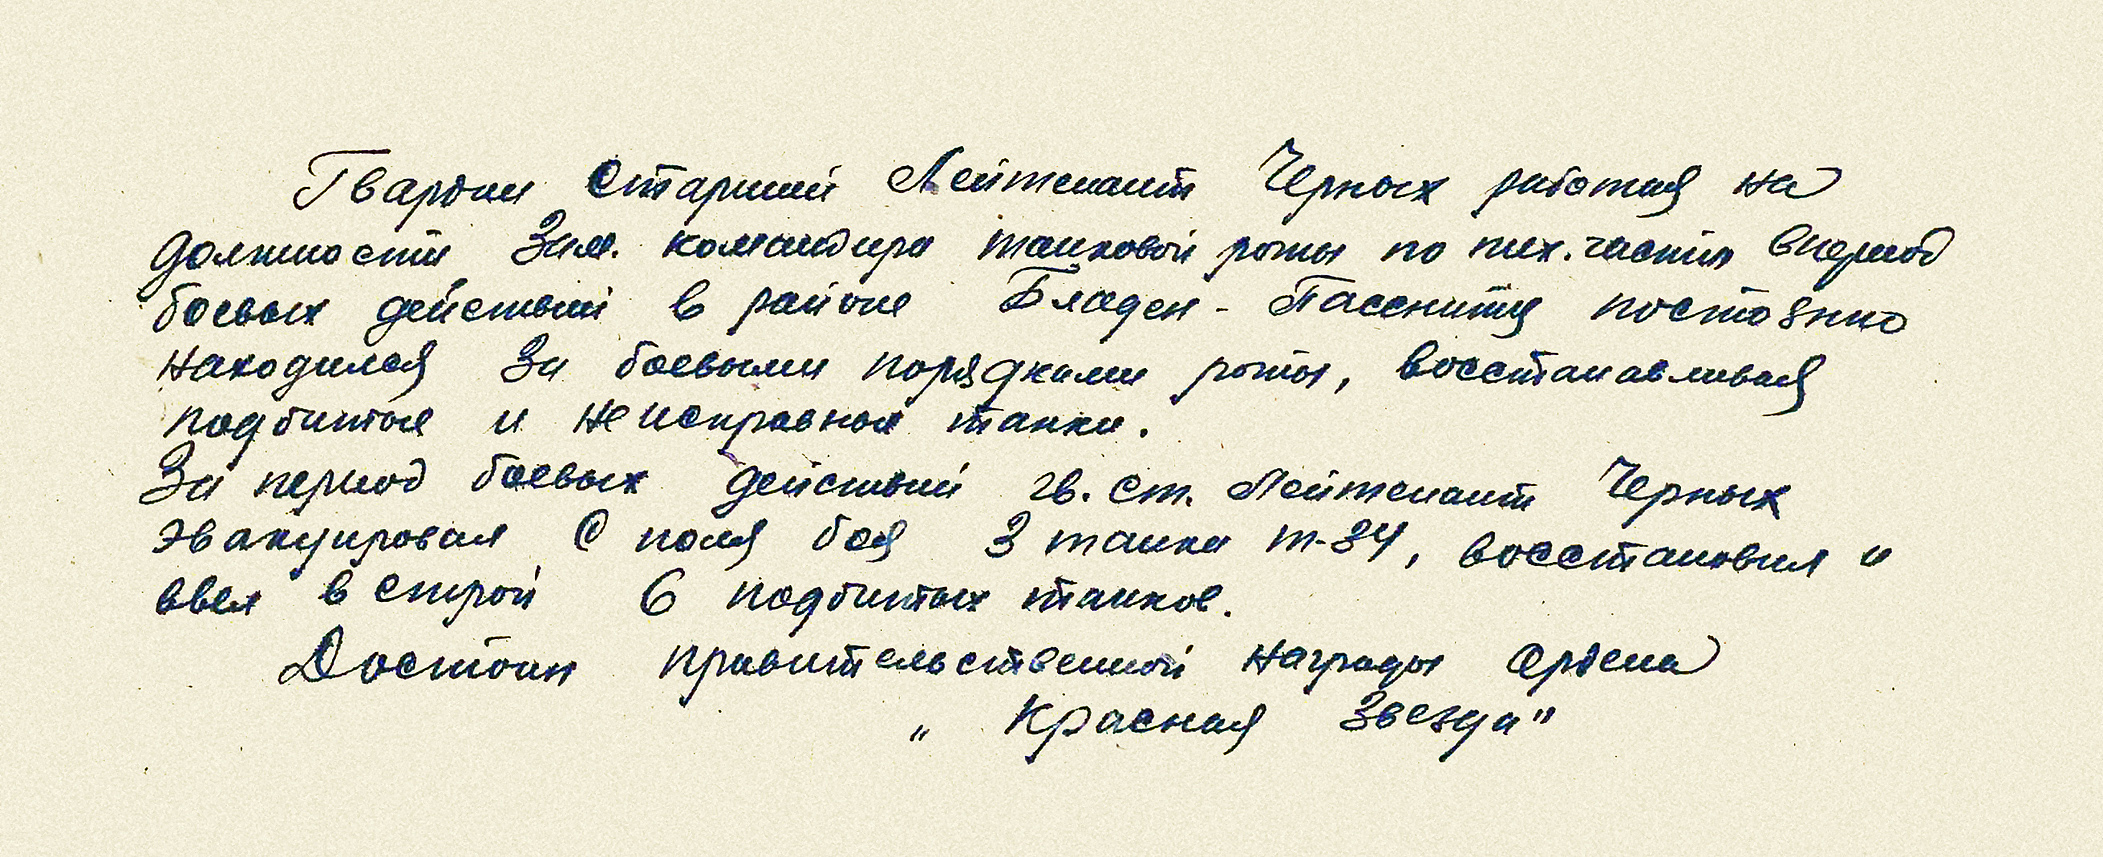 Гвардии Старший Лейтенант Черных работая на
должности Зам. командира танковой роты по тех. части в период
боевых действий в районе Бладен - Пасснитц постоянно
находился за боевыми порядками роты, восстанавливая
подбитые и неисправные танки.
За период боевых действий гв. ст. Лейтенант Черных
эвакуировал с поля боя 3 танка т-34, восстановил и
ввел в строй 6 подбитых танков.
Достоин правительственной награды ордена
„ Красная Звезда"